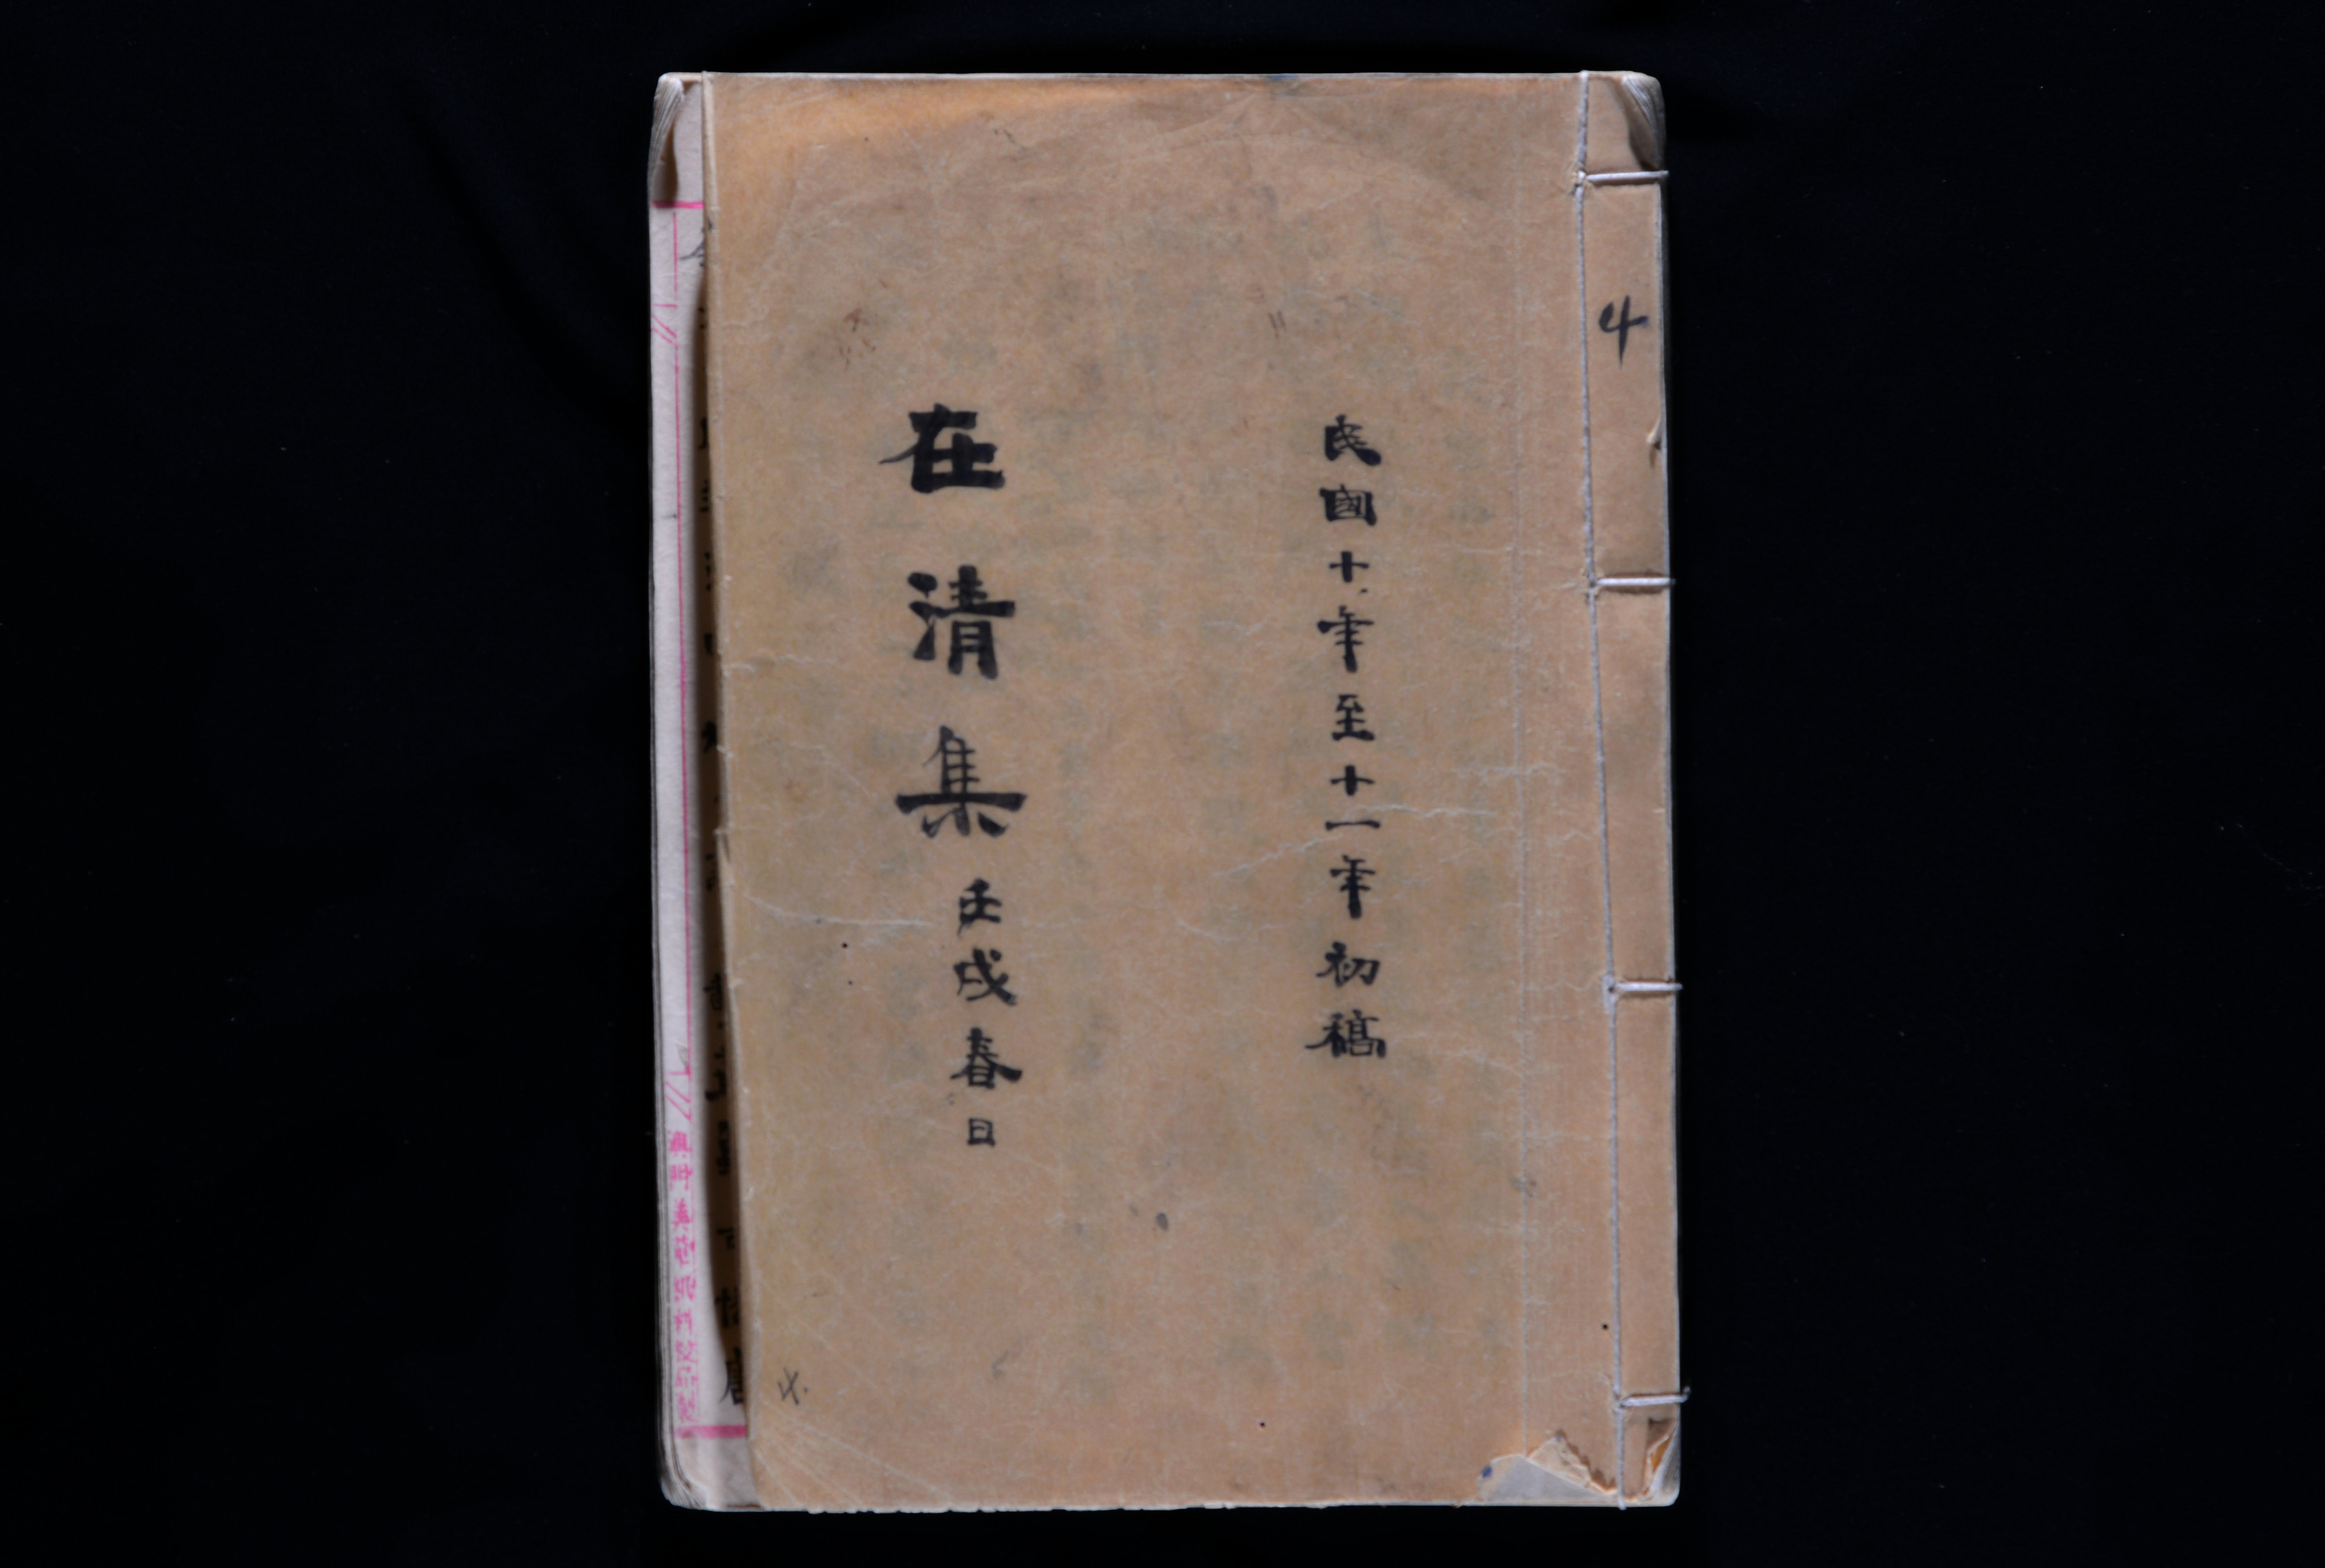 4
民國十年至十一年初稿
在清集 壬戌春日
4.